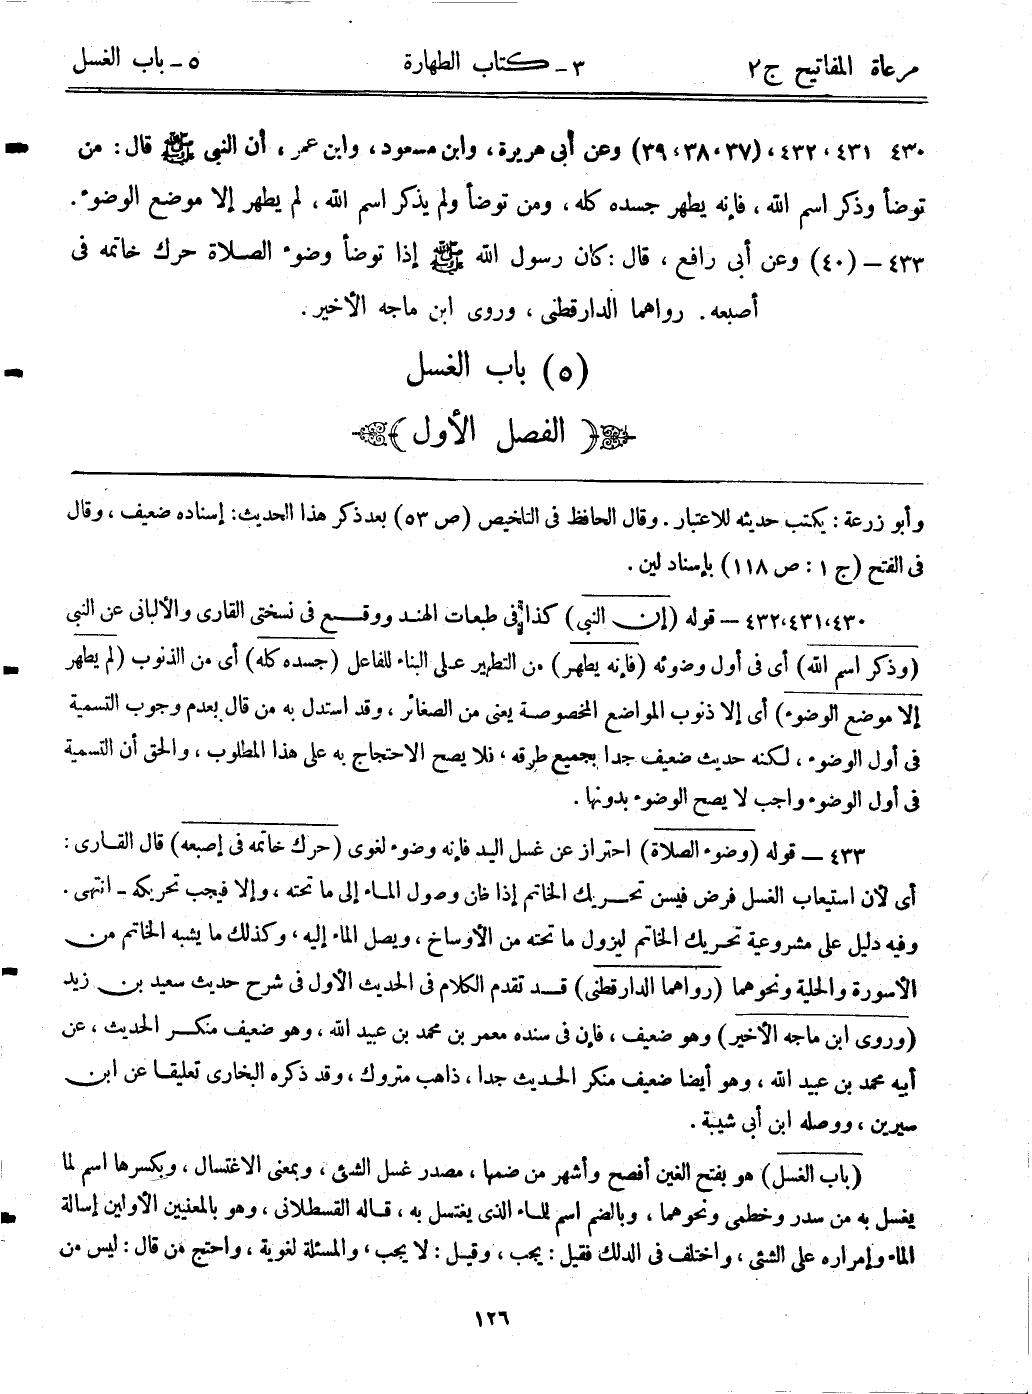 مرعاة المفاتيح ج٢ ٣ - كتاب الطهارة ٥ - باب الغسل
٤٣٠ ٤٣١، ٤٣٢، (٣٧، ٣٨، ٣٩) وعن أبى هريرة، وابن مسعود، وابن عمر، أن النبى ﷺ قال: من
توضأ وذكر اسم الله، فإنه يطهر جسده كله، ومن توضأ ولم يذكر اسم الله، لم يطهر إلا موضع الوضوء.
٤٣٣ - (٤٠) وعن أبى رافع، قال: كان رسول الله ﷺ إذا توضأ وضوء الصلاة حرك خاتمه فى
أصبعه. رواهما الدارقطنى، وروى ابن ماجه الأخير.
(٥) باب الغسل
﴿ الفصل الأول ﴾
وأبو زرعة: يكتب حديثه للاعتبار. وقال الحافظ فى التلخيص (ص ٥٣) بعد ذكر هذا الحديث: إسناده ضعيف، وقال
فى الفتح (ج ١: ص ١١٨) بإسناد لين.
٤٣٠، ٤٣١، ٤٣٢ - قوله (إن النبى) كذا فى طبعات الهند ووقع فى نسختى القارى والألبانى عن النبى
(وذكر اسم الله) أى فى أول وضوئه (فإنه يطهر) من التطهير على البناء للفاعل (جسده كله) أى من الذنوب (لم يطهر
إلا موضع الوضوء) أى إلا ذنوب المواضع المخصوصة يعنى من الصغائر، وقد استدل به من قال بعدم وجوب التسمية
فى أول الوضوء، لكنه حديث ضعيف جدا بجميع طرقه، فلا يصح الاحتجاج به على هذا المطلوب، والحق أن التسمية
فى أول الوضوء واجب لا يصح الوضوء بدونها.
٤٣٣ - قوله (وضوء الصلاة) احتراز عن غسل اليد فإنه وضوء لغوى (حرك خاتمه فى إصبعه) قال القارى:
أى لأن استيعاب الغسل فرض فيسن تحريك الخاتم إذا ظن وصول الماء إلى ما تحته، وإلا فيجب تحريكه - انتهى.
وفيه دليل على مشروعية تحريك الخاتم ليزول ما تحته من الأوساخ، ويصل الماء إليه، وكذلك ما يشبه الخاتم من
الأسورة والحلية ونحوهما (رواهما الدارقطنى) قد تقدم الكلام فى الحديث الأول فى شرح حديث سعيد بن زيد
(وروى ابن ماجه الأخير) وهو ضعيف، فإن فى سنده معمر بن محمد بن عبيد الله، وهو ضعيف منكر الحديث، عن
أبيه محمد بن عبيد الله، وهو أيضا ضعيف منكر الحديث جدا، ذاهب متروك، وقد ذكره البخارى تعليقا عن ابن
سيرين، ووصله ابن أبي شيبة.
(باب الغسل) هو بفتح الغين أفصح وأشهر من ضمها، مصدر غسل الشئ، وبمعنى الاغتسال، وبكسرها اسم لما
يغسل به من سدر وخطمى ونحوهما، وبالضم اسم للماء الذى يغتسل به، قاله القسطلانى، وهو بالمعنيين الأولين إسالة
الماء وإمراره على الشئ، واختلف فى الدلك فقيل: يجب، وقيل: لا يجب، والمسئلة لغوية، واحتج من قال: ليس من
١٢٦